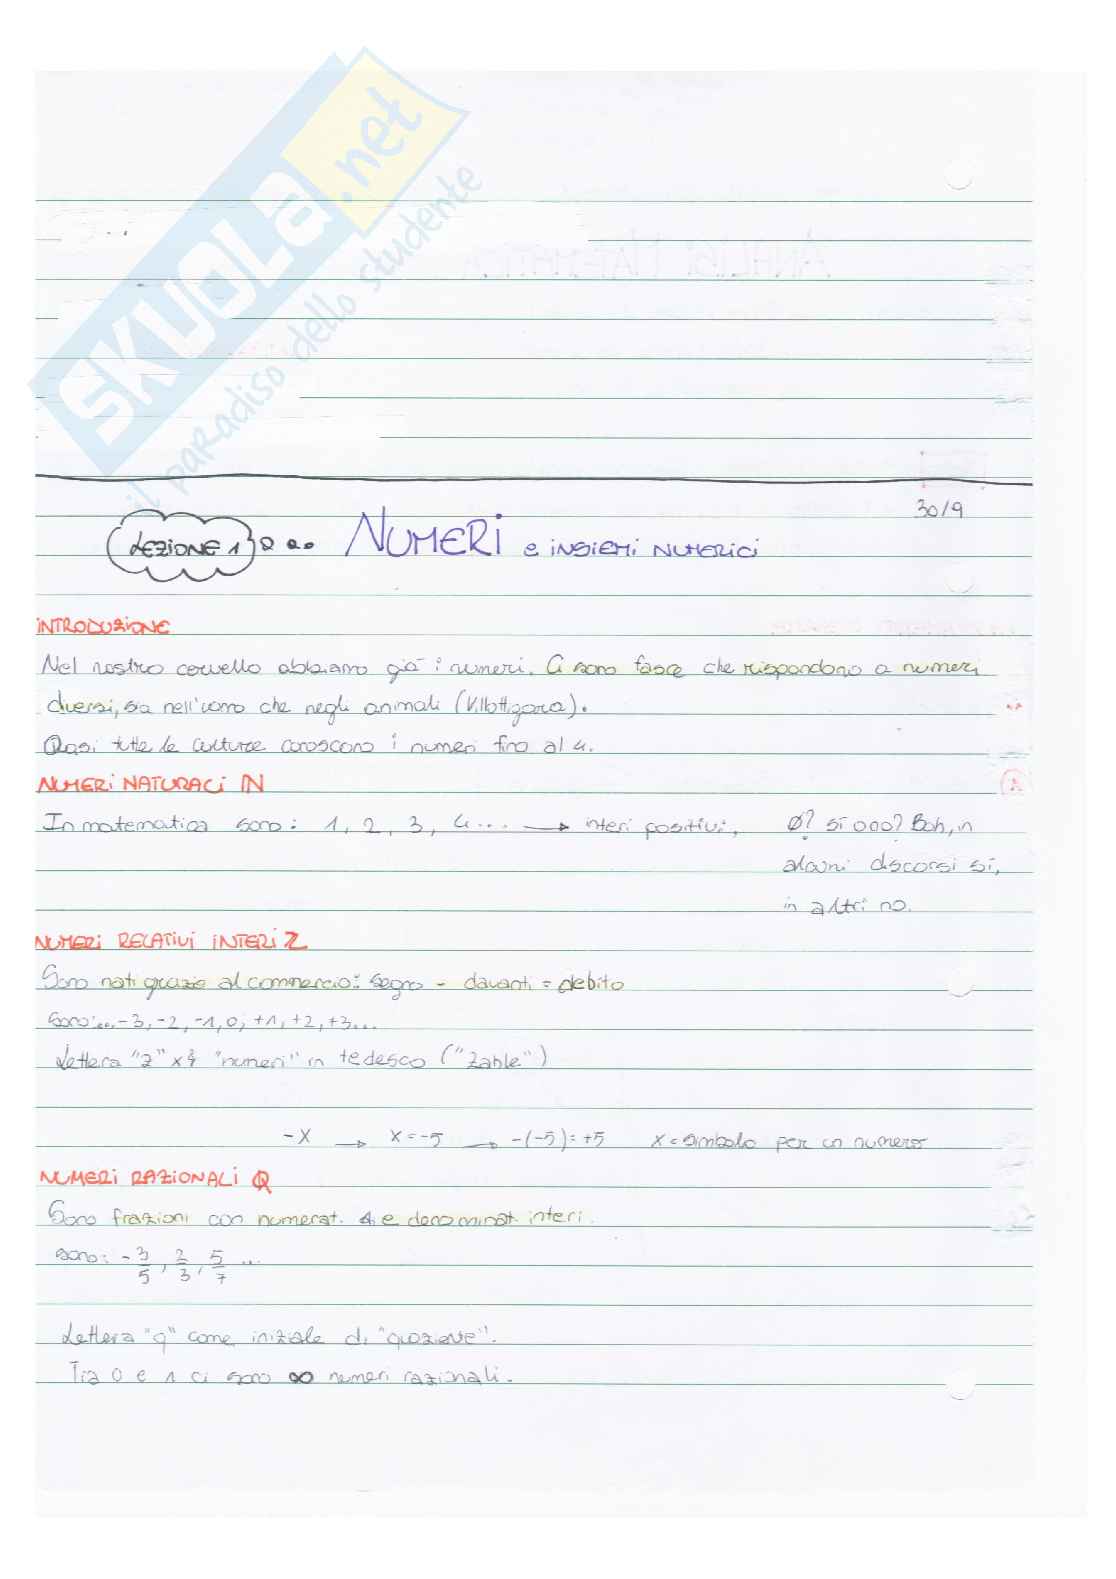 SKUOLA.net
il paradiso dello studente
ANALISI MATEMATICA
30/9
LEZIONE 1 NUMERI e iNSiEMi NUMERiCi
iNTRODUZiONE
Nel nostro cervello abbiamo già i numeri. Ci sono fasce che rispondono a numeri
diversi, sia nell'uomo che negli animali (Villottigana).
Quasi tutte le culture conoscono i numeri fino al 4.
NUMERi NATURALi ℕ
In matematica sono: 1, 2, 3, 4... → interi positivi. Ø? sì o no? Boh, in
alcuni discorsi sì,
in altri no.
NUMERi RELATIVI iNTERi ℤ
Sono nati grazie al commercio: segno - davanti = debito
sono: ... -3, -2, -1, 0, +1, +2, +3...
Lettera "Z" x "numeri" in tedesco ("Zahle")
-x → x=-5 → -(-5)=+5 x = simbolo per un numero
NUMERi RAZIONALI ℚ
Sono frazioni con numerat. e denominat. interi.
sono: -3/5, 2/3, 5/7 ...
Lettera "q" come iniziale di "quoziente".
Tra 0 e 1 ci sono ∞ numeri razionali.